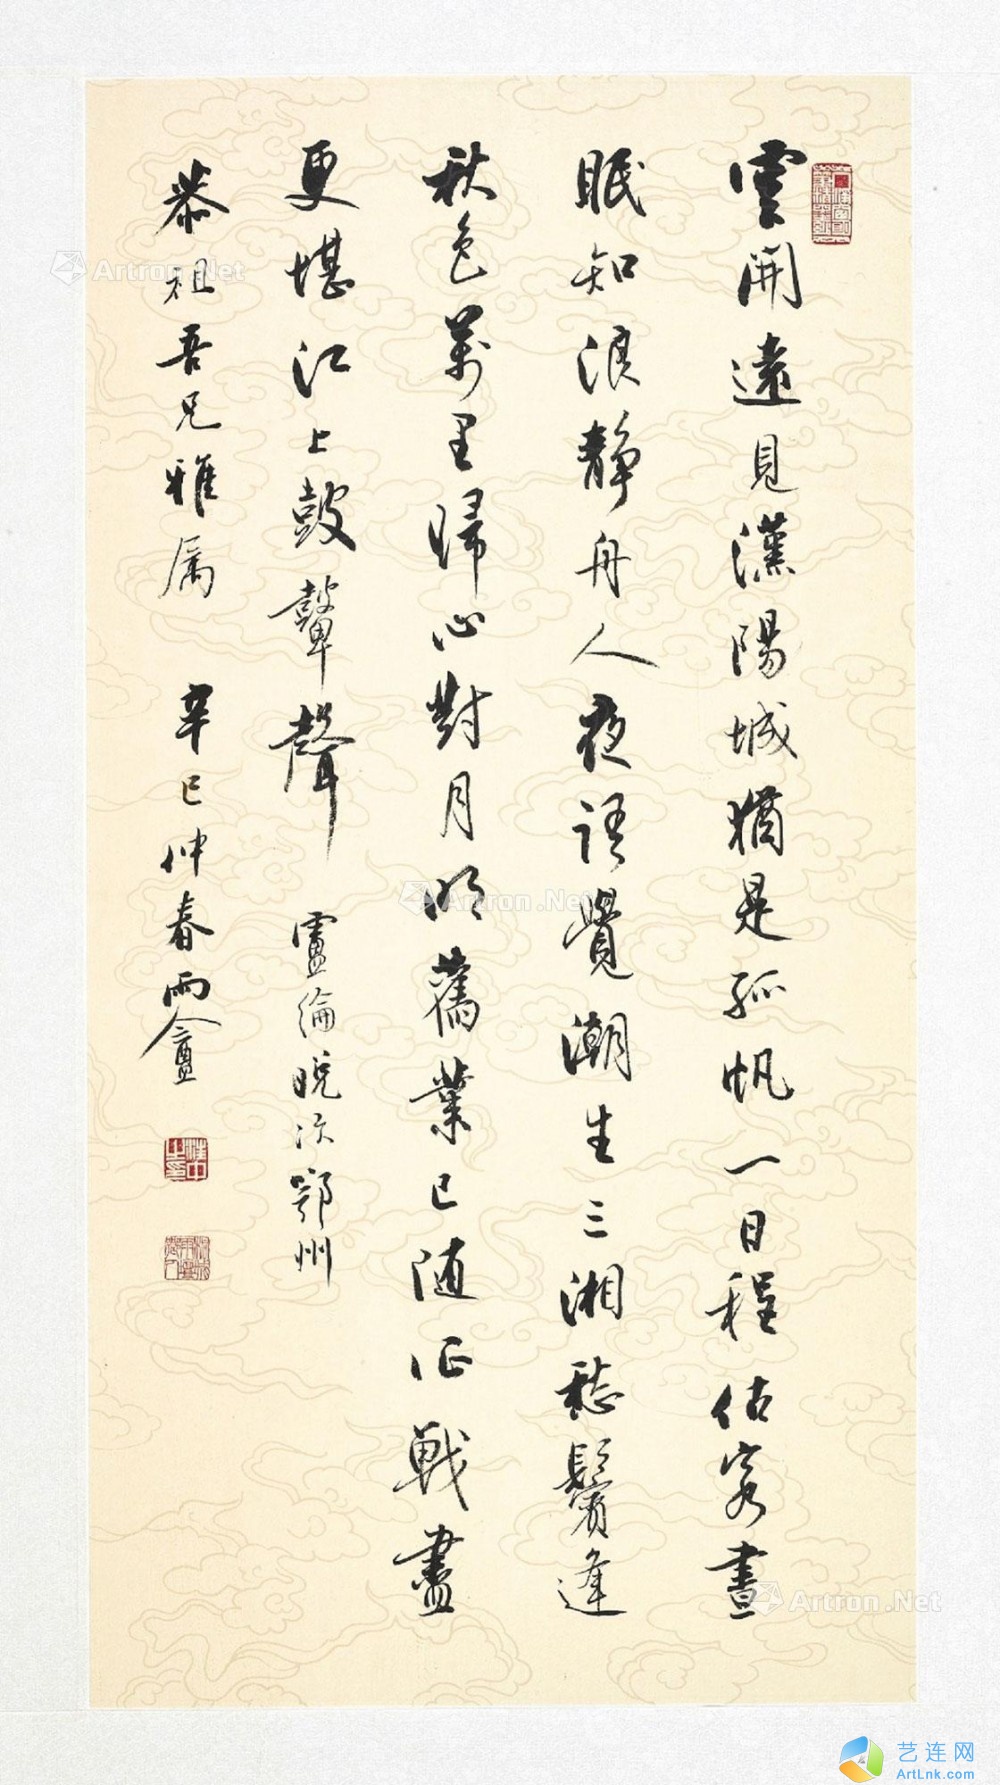 雲開遠見漢陽城猶是孤帆一日程估客晝
眠知浪静舟人夜語覺潮生三湘愁鬢逢
秋色萬里歸心對月明舊業已随征戰盡
更堪江上鼓鼙聲
盧綸晚次鄂州
恭祖吾兄雅属
辛巳仲春雨盦
Artron.Net
Artron.Net
Artron.Net
艺连网
ArtLnk.com